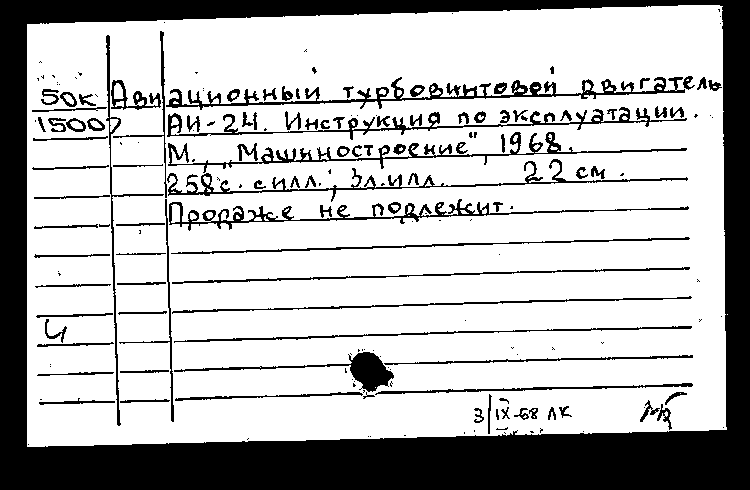 50к Авиационный турбовинтовой двигатель
15007 АИ-24. Инструкция по эксплуатации.
М., „Машиностроение", 1968.
258с. с илл.; 3л.илл. 22 см.
Продаже не подлежит.
4
3/IX-68 ЛК